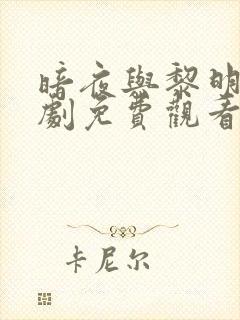 暗夜與黎明
劇免費觀看
卡尼尔